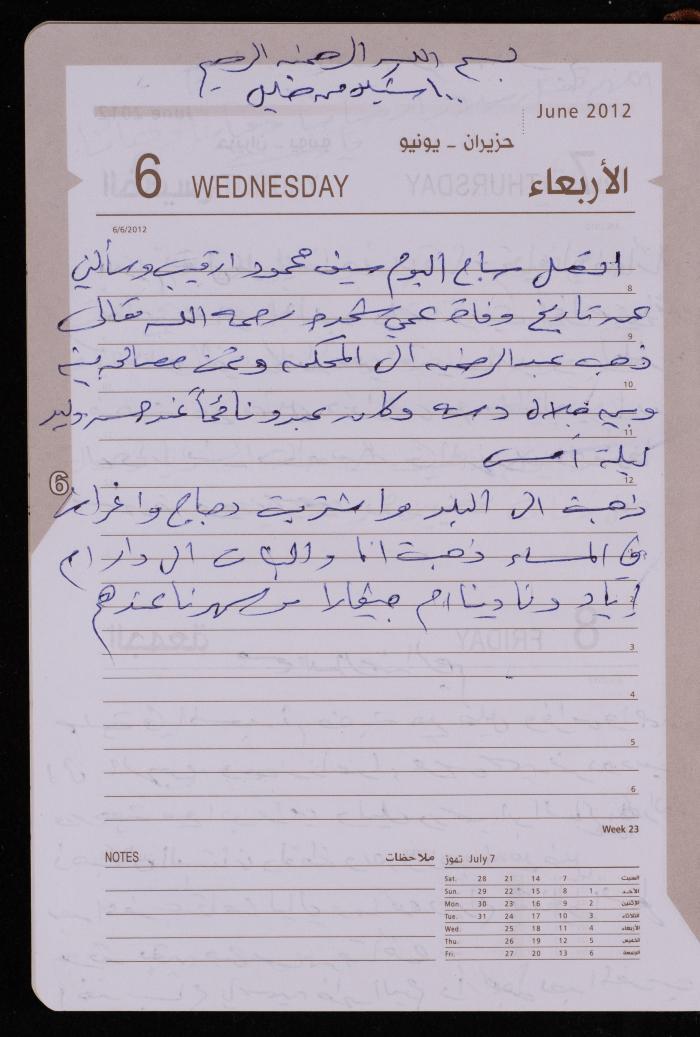 بسم الله الرحمن الرحيم
١٠٠ شيكل من خليل
June 2012
حزيران - يونيو
6 WEDNESDAY الأربعاء
6/6/2012
اتصل صباح اليوم سيف محمود ارقيب وسألني
8
عن تاريخ وفاة عمي رحمه الله فقالي
9
ذهب عبد الرحمن ال المحكمه
10
وبين وكان عبدو نائماً عند وليد
11
ليلة أمس
12
6
ذهبت ال البلد واشتريت دجاج واغراض
في المساء ذهبت انا والبنات ال دار ام
إياد ونادينا ام جيفارا وسهرنا عندهم
2
3
4
5
6
Week 23
NOTES ملاحظات
تموز July 7
Sat. 28 21 14 7 السبت
Sun. 29 22 15 8 1 الأحد
Mon. 30 23 16 9 2 الإثنين
Tue. 31 24 17 10 3 الثلاثاء
Wed. 25 18 11 4 الأربعاء
Thu. 26 19 12 5 الخميس
Fri. 27 20 13 6 الجمعة